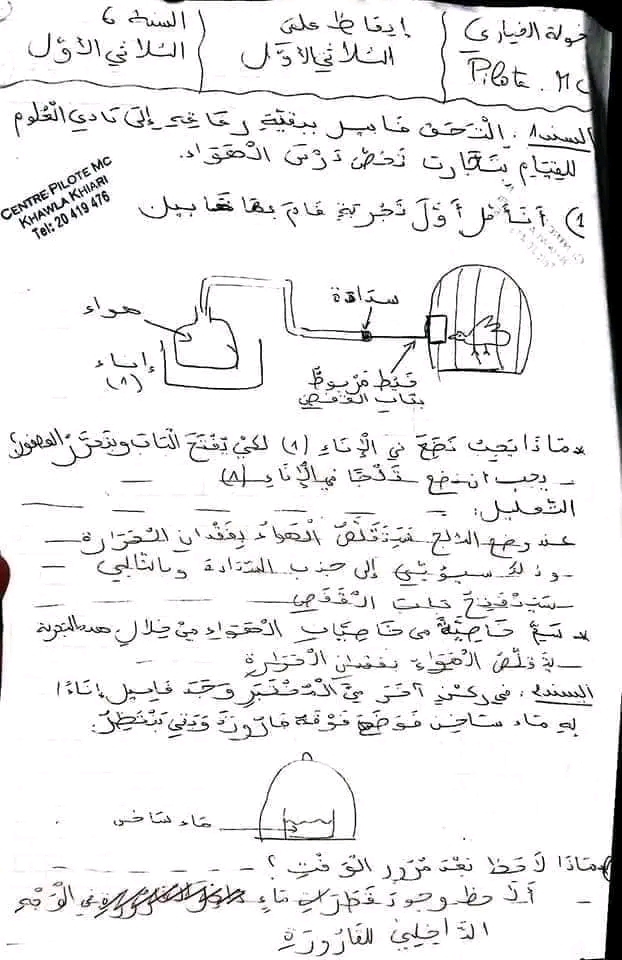 خولة الخياري
Pilote. MC
إيقاظ علمي
الثلاثي الأوّل
السنة 6
الثلاثي الأوّل
السند 1. التحق هابيل ببقيّة رفاقه إلى نادي العلوم
للقيام بتجارب تخصّ درس الهواء.
CENTRE PILOTE MC
KHAWLA KHIARI
Tel: 20 419 476
1) أتأمّل أوّل تجربة قام بها هابيل
هواء
إناء
(A)
سدادة
خيط مربوط
بباب القفص
* ماذا يجب نضع في الإناء (A) لكي يفتح الباب ويتحرّر العصفور؟
- يجب أن نضع ثلجا في الإناء (A)
التعليل:
عند وضع الثلج فيتقلّص الهواء بفقدان الحرارة
وذلك سيؤدّي إلى جذب السّدادة وبالتالي
سينفتح باب القفص
* سمّ خاصيّة من خاصيّات الهواء من خلال هذه التجربة
- تقلّص الهواء بفقدان الحرارة
السند 2. في ركن آخر في المختبر وجد هابيل إناءًا
به ماء ساخن فوضع فوقه قارورة وبقي ينتظر.
ماء ساخن
* ماذا لاحظ بعد مرور الوقت؟
- ألاحظ وجود قطرات ماء في الوجه
الداخلي للقارورة